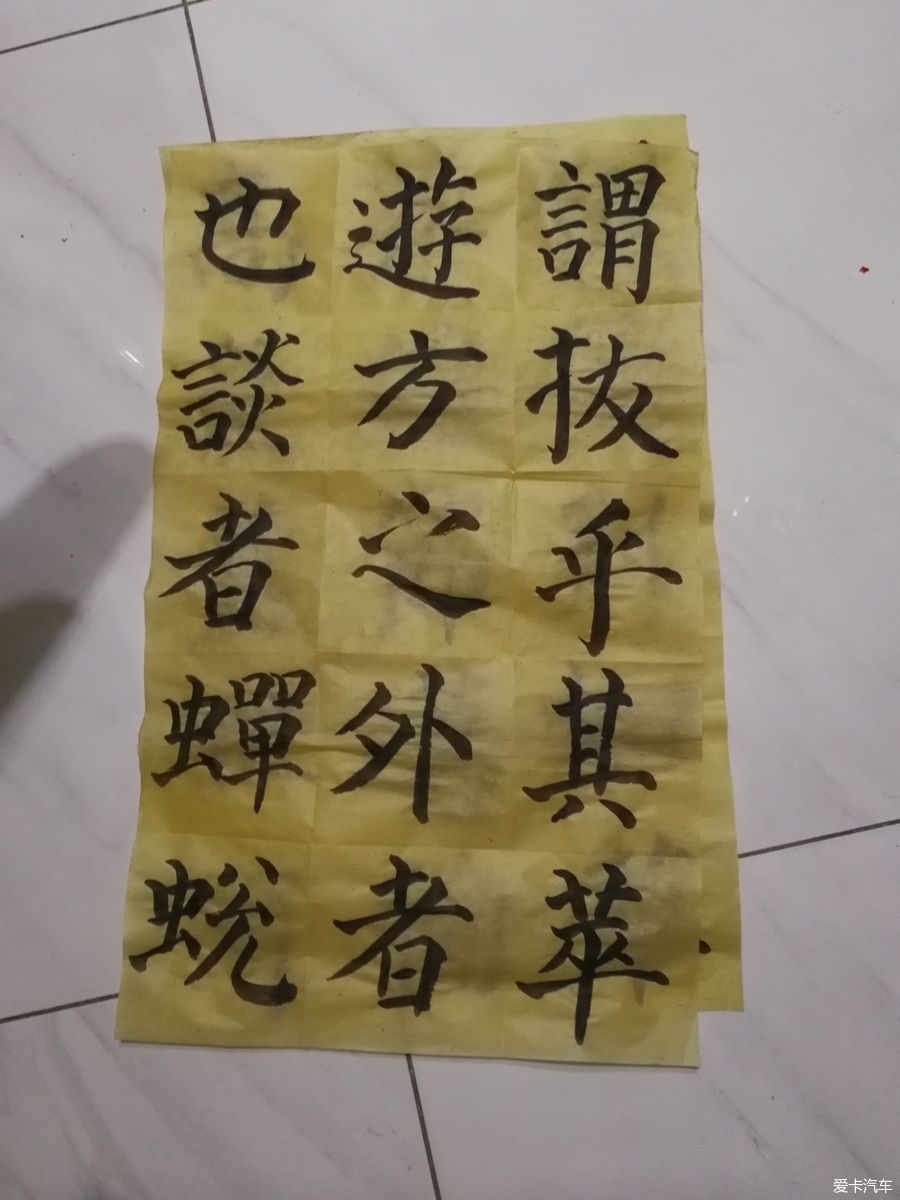 謂拔乎其萃
遊方之外者
也談者蟬蛻
爱卡汽车